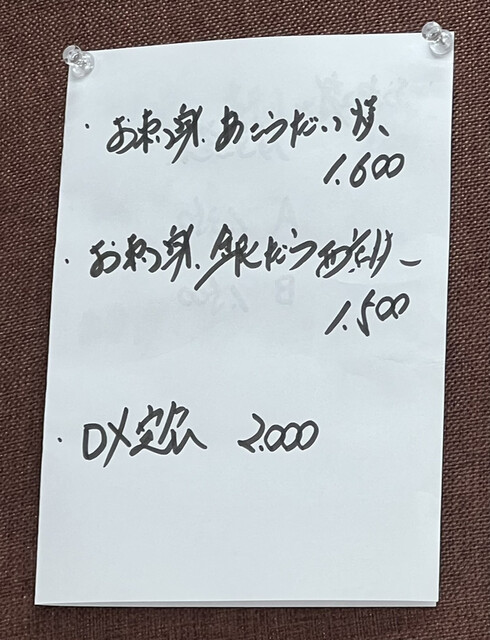 ・お刺身、あこうだい焼、
1.600
・お刺身、銀だら西京焼
1.500
・DX定食 2.000